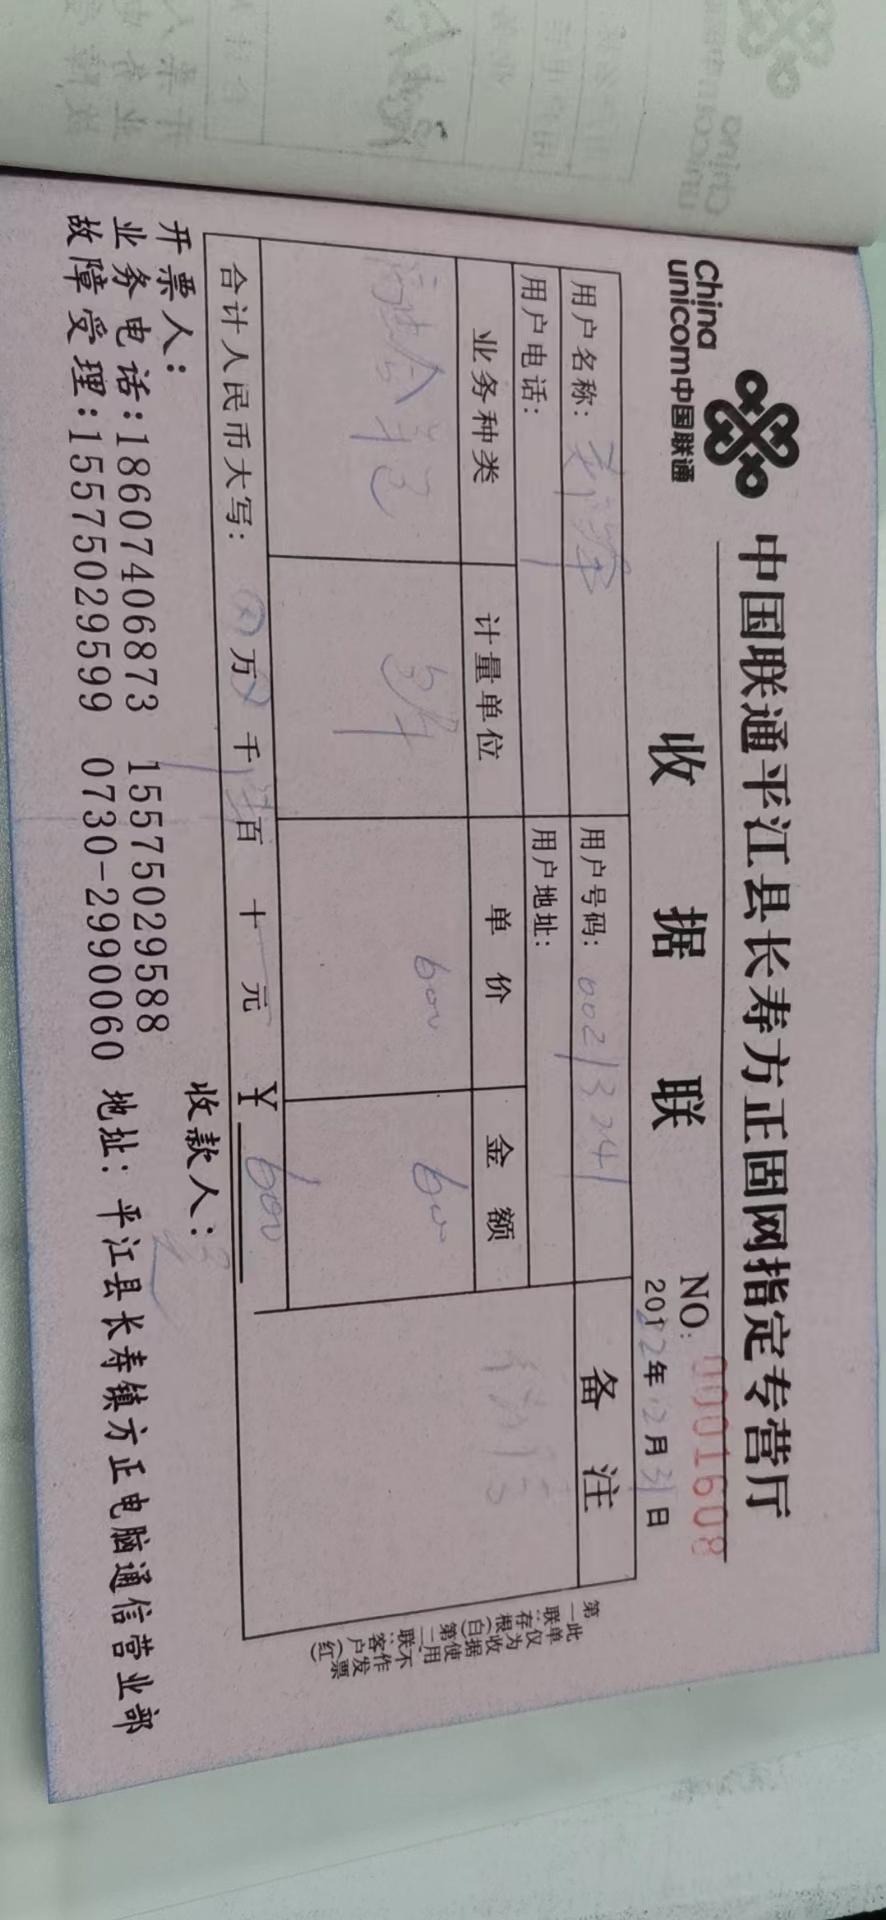 China
unicom中国联通
中国联通平江县长寿方正固网指定专营厅
收据联
NO: 0001608
2012年12月31日
用户名称:
用户号码: 00213241
用户电话:
用户地址:
业务种类 计量单位 单价 金额 备注
3年 600 600
合计人民币大写: 万 千 百 十 元 ¥ 600
开票人: 收款人:
业务电话:18607406873 15575029588
故障受理:15575029599 0730-2990060 地址: 平江县长寿镇方正电脑通信营业部
此单仅为收据使用不作发票
第一联:存根(白) 第二联:客户(红)